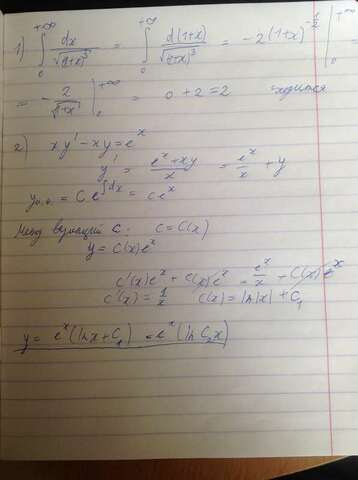 1) ∫₀^{+∞} dx/√(1+x)³ = ∫₀^{+∞} d(1+x)/√(1+x)³ = -2(1+x)^{-1/2} |₀^{+∞} =
= - 2/√(1+x) |₀^{+∞} = 0+2=2 сходится
2) xy' - xy = e^x
y' = (e^x + xy)/x = e^x/x + y
y = C e^{∫dx} = ce^x
Метод вариаций C: C = C(x)
y = C(x)e^x
C'(x)e^x + C(x)e^x = e^x/x + C(x)e^x
C'(x) = 1/x C(x) = ln|x| + C₁
y = e^x(lnx + C₁) = e^x(ln C₂x)